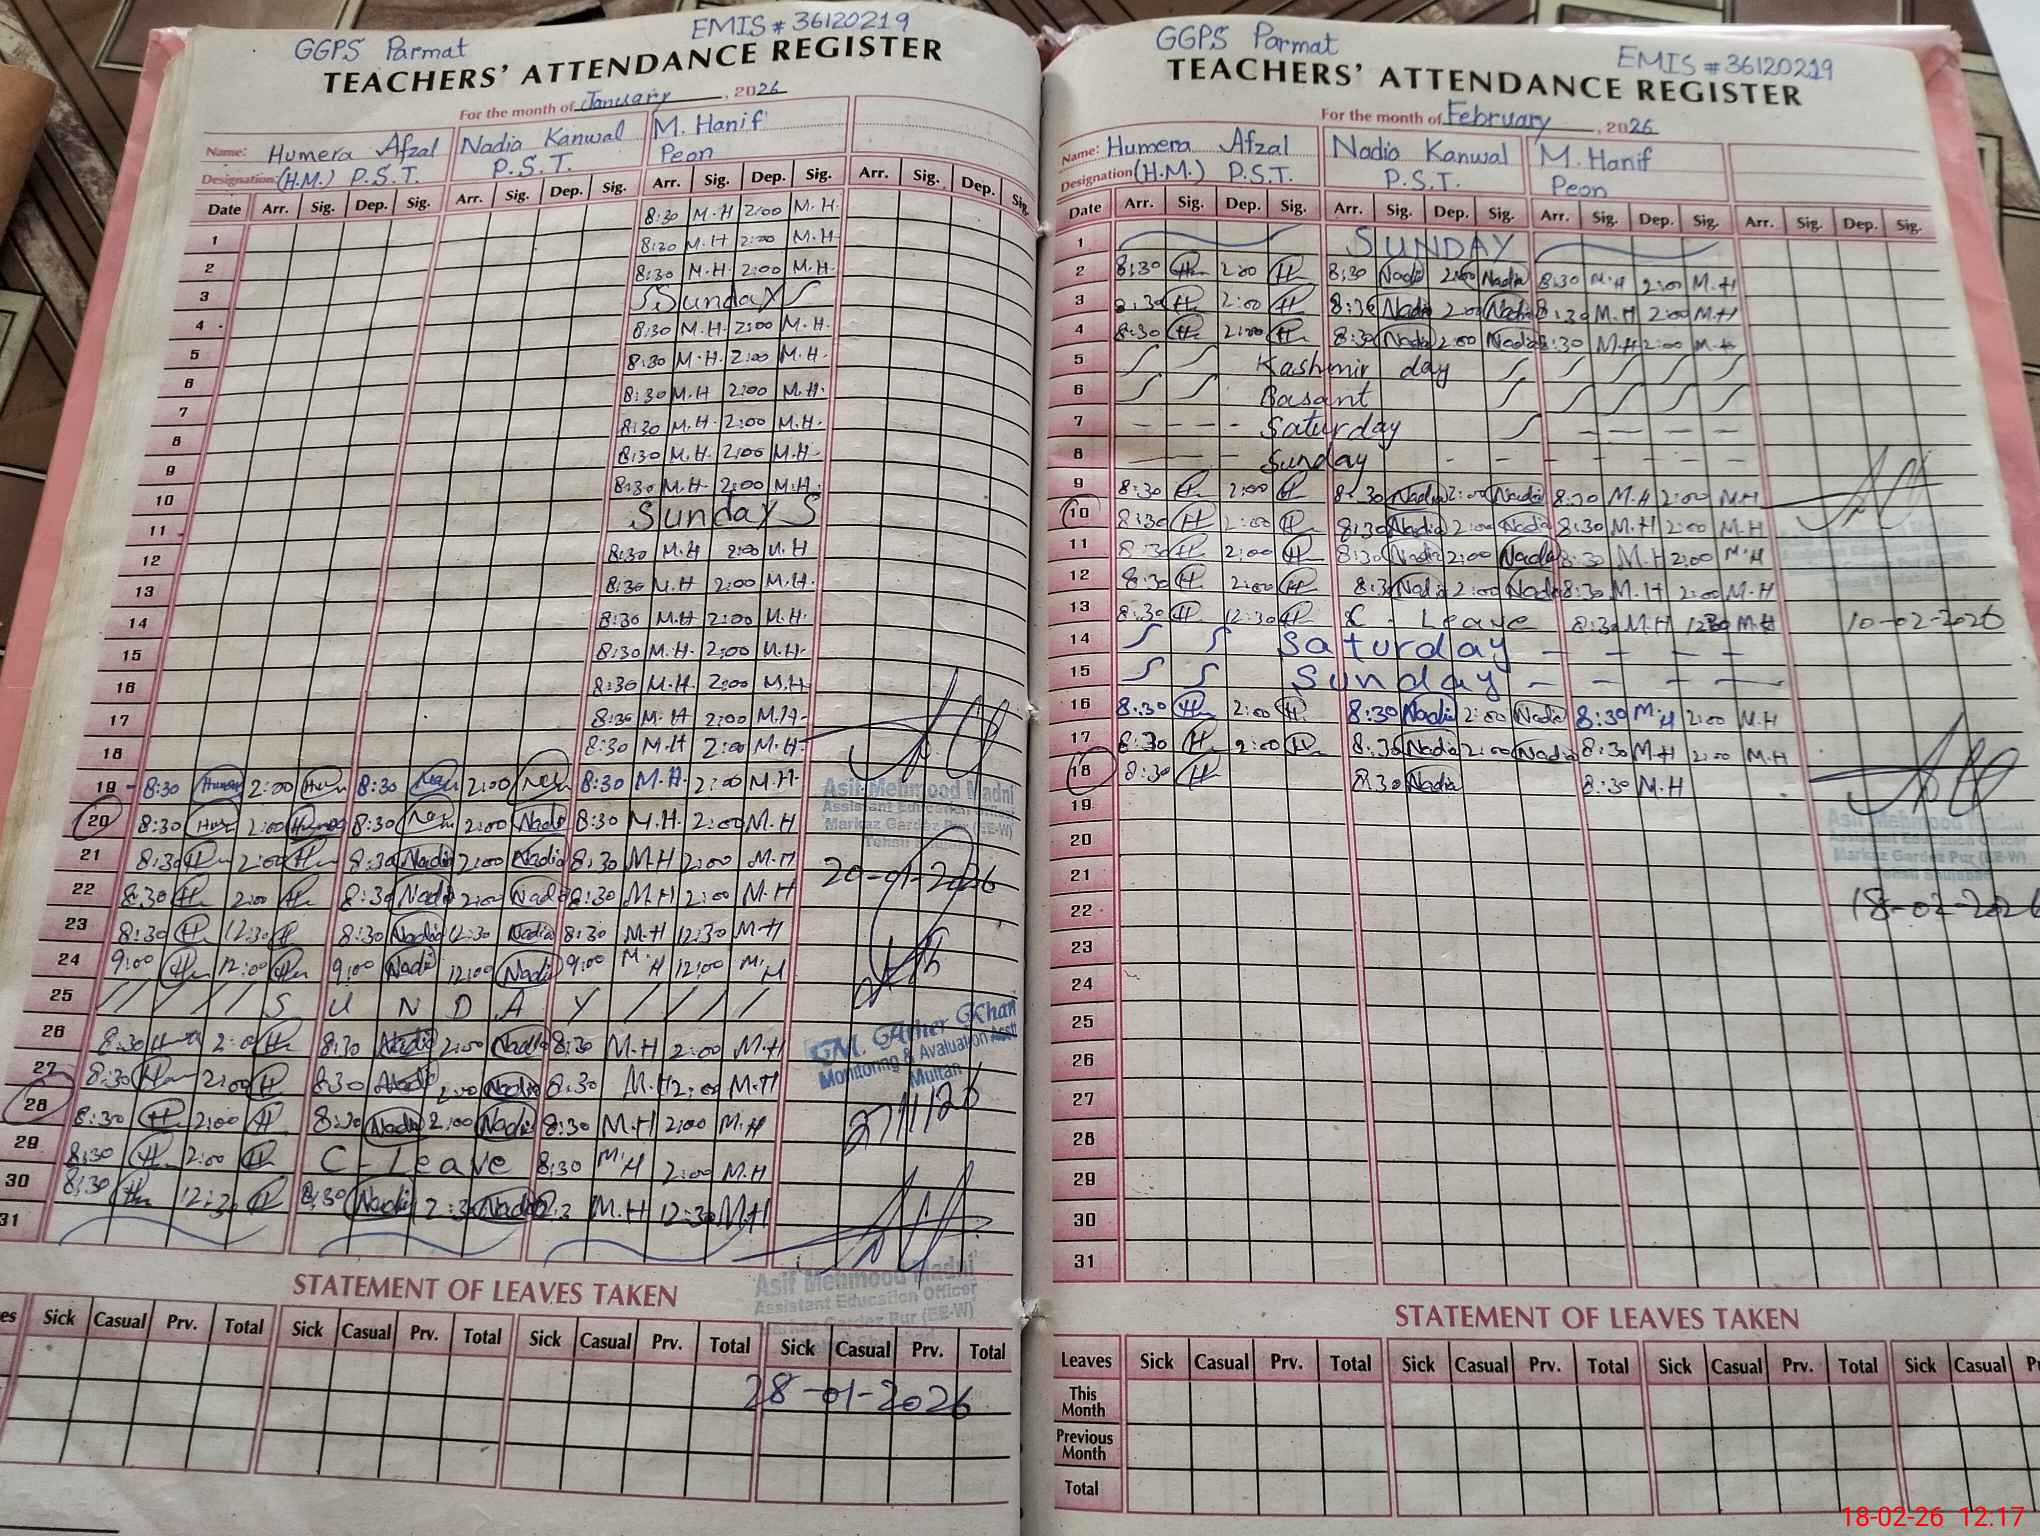 GGPS Parmat
EMIS # 36120219
TEACHERS' ATTENDANCE REGISTER
For the month of January, 2026
Name: Humera Afzal Nadia Kanwal M. Hanif
Designation: (H.M.) P.S.T. P.S.T. Peon
Date Arr. Sig. Dep. Sig. Arr. Sig. Dep. Sig. Arr. Sig. Dep. Sig. Arr. Sig. Dep. Sig.
8:30 M.H 2:00 M.H.
1 8:30 M.H 2:00 M.H
2 8:30 M.H. 2:00 M.H.
3 Sunday
4 8:30 M.H. 2:00 M.H.
5 8:30 M.H. 2:00 M.H.
6 8:30 M.H 2:00 M.H.
7 8:30 M.H. 2:00 M.H.
8 8:30 M.H. 2:00 M.H.
9 8:30 M.H. 2:00 M.H.
10 Sunday
11
12 8:30 M.H 2:00 M.H
13 8:30 M.H. 2:00 M.H.
14 8:30 M.H 2:00 M.H.
15 8:30 M.H. 2:00 M.H.
16 8:30 M.H. 2:00 M.H.
17 8:30 M.H 2:00 M.H.
18 8:30 M.H 2:00 M.H.
19 8:30 2:00 8:30 2:00 8:30 M.H. 2:00 M.H.
20 8:30 2:00 8:30 2:00 Nadi 8:30 M.H. 2:00 M.H
21 8:30 2:00 8:30 Nadia 2:00 Nadia 8:30 M.H 2:00 M.H
22 8:30 2:00 8:30 Nadi 2:00 Nadi 8:30 M.H 2:00 M.H
23 8:30 12:30 8:30 Nadia 12:30 Nadia 8:30 M.H 12:30 M.H
24 9:00 12:00 9:00 Nadi 12:00 Nadi 9:00 M.H 12:00 M.H
25 S U N D A Y
26 8:30 2:00 8:30 Nadi 2:00 Nadia 8:30 M.H 2:00 M.H
27 8:30 2:00 8:30 Nadi 2:00 Nadia 8:30 M.H 2:00 M.H
28 8:30 2:00 8:30 Nadi 2:00 Nadi 8:30 M.H 2:00 M.H
29 8:30 2:00 C - Leave 8:30 M.H 2:00 M.H
30 8:30 12:30 8:30 Nadi Nadi M.H 12:30 M.H
31
Asif Mehmood Madni
Assistant Education Officer
Markaz Gardez Pur (EE-W)
Tehsil Shujabad
20-01-2026
Monitoring & Evaluation Asstt
Multan
Asif Mehmood Madni
Assistant Education Officer
Markaz Gardez Pur (EE-W)
28-01-2026
STATEMENT OF LEAVES TAKEN
Sick Casual Prv. Total Sick Casual Prv. Total Sick Casual Prv. Total Sick Casual Prv. Total
GGPS Parmat
EMIS # 36120219
TEACHERS' ATTENDANCE REGISTER
For the month of February, 2026
Name: Humera Afzal Nadia Kanwal M. Hanif
Designation (H.M.) P.S.T. P.S.T. Peon
Date Arr. Sig. Dep. Sig. Arr. Sig. Dep. Sig. Arr. Sig. Dep. Sig. Arr. Sig. Dep. Sig.
1 SUNDAY
2 8:30 2:00 8:30 Nadi 2:00 Nadia 8:30 M.H 2:00 M.H
3 8:30 2:00 8:30 Nadi 2:00 Nadia 8:30 M.H 2:00 M.H
4 8:30 2:00 8:30 Nadi 2:00 Nadi 8:30 M.H 2:00 M.H
5 Kashmir day
6 Basant
7 - - - - Saturday - - - -
8 Sunday - - - - - -
9 8:30 2:00 8:30 Nadia 2:00 Nadi 8:30 M.H 2:00 M.H
10 8:30 2:00 8:30 Nadia 2:00 Nadi 8:30 M.H 2:00 M.H
11 8:30 2:00 8:30 Nadia 2:00 Nadi 8:30 M.H 2:00 M.H
12 8:30 2:00 8:30 Nadi 2:00 Nadi 8:30 M.H 2:00 M.H
13 8:30 12:30 C - Leave 8:30 M.H 12:30 M.H
14 Saturday - - - -
15 Sunday - - - -
16 8:30 2:00 8:30 Nadi 2:00 Nadi 8:30 M.H 2:00 M.H
17 8:30 2:00 8:30 Nadi 2:00 Nadi 8:30 M.H 2:00 M.H
18 8:30 8:30 Nadia 8:30 M.H
19
20
21
22
23
24
25
26
27
28
29
30
31
10-02-2026
Asif Mehmood Madni
Assistant Education Officer
Markaz Gardez Pur (EE-W)
Tehsil Shujabad
18-02-2026
STATEMENT OF LEAVES TAKEN
Leaves Sick Casual Prv. Total Sick Casual Prv. Total Sick Casual Prv. Total Sick Casual
This Month
Previous Month
Total
18-02-26 12:17